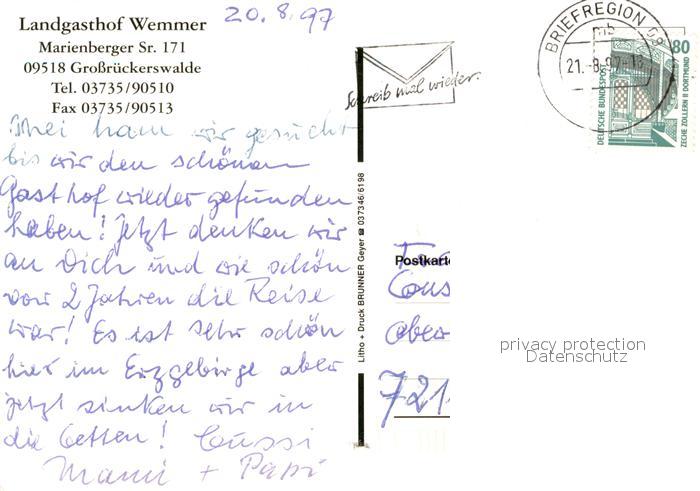 Landgasthof Wemmer
Marienberger Sr. 171
09518 Großrückerswalde
Tel. 03735/90510
Fax 03735/90513
20.8.97
Mei ham wir gesucht
bis wir den schönen
Gasthof wieder gefunden
haben! Jetzt denken wir
an Dich und wie schön
vor 2 Jahren die Reise
war! Es ist sehr schön
hier im Erzgebirge aber
jetzt sinken wir in
die Betten! Bussi
Mami + Papi
Litho + Druck BRUNNER Geyer ☎ 037346/6198
Schreib mal wieder.
BRIEFREGION 09
mb
21.-8.97-18
80
DEUTSCHE BUNDESPOST
ZECHE ZOLLERN II DORTMUND
Postkarte
ober
721
privacy protection
Datenschutz